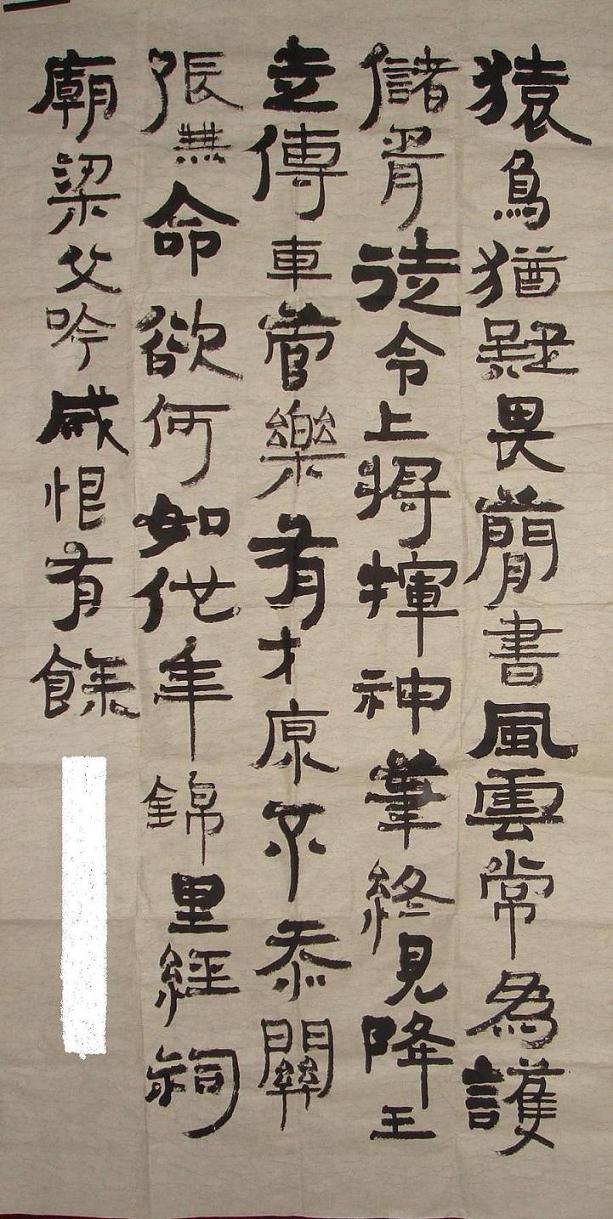 猿鳥猶疑畏簡書風雲常為護
儲胥徒令上將揮神筆終見降王
走傳車管樂有才原不忝關
張無命欲何如他年錦里經祠
廟梁父吟成恨有餘